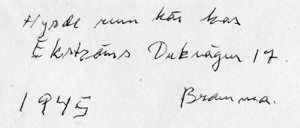 Hyrde rum här hos
Ekströms Dukvägen 17.
1945 Bromma.